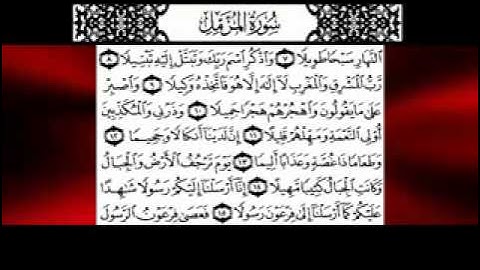 سورة المزمل
النهار سبحا طويلا ٧ واذكر اسم ربك وتبتل إليه تبتيلا ٨
رب المشرق والمغرب لا إله إلا هو فاتخذه وكيلا ٩ واصبر
على ما يقولون واهجرهم هجرا جميلا ١٠ وذرني والمكذبين
أولي النعمة ومهلهم قليلا ١١ إن لدينا أنكالا وجحيما ١٢
وطعاما ذا غصة وعذابا أليما ١٣ يوم ترجف الأرض والجبال
وكانت الجبال كثيبا مهيلا ١٤ إنا أرسلنا إليكم رسولا شهدا
عليكم كما أرسلنا إلى فرعون رسولا ١٥ فعصى فرعون الرسول